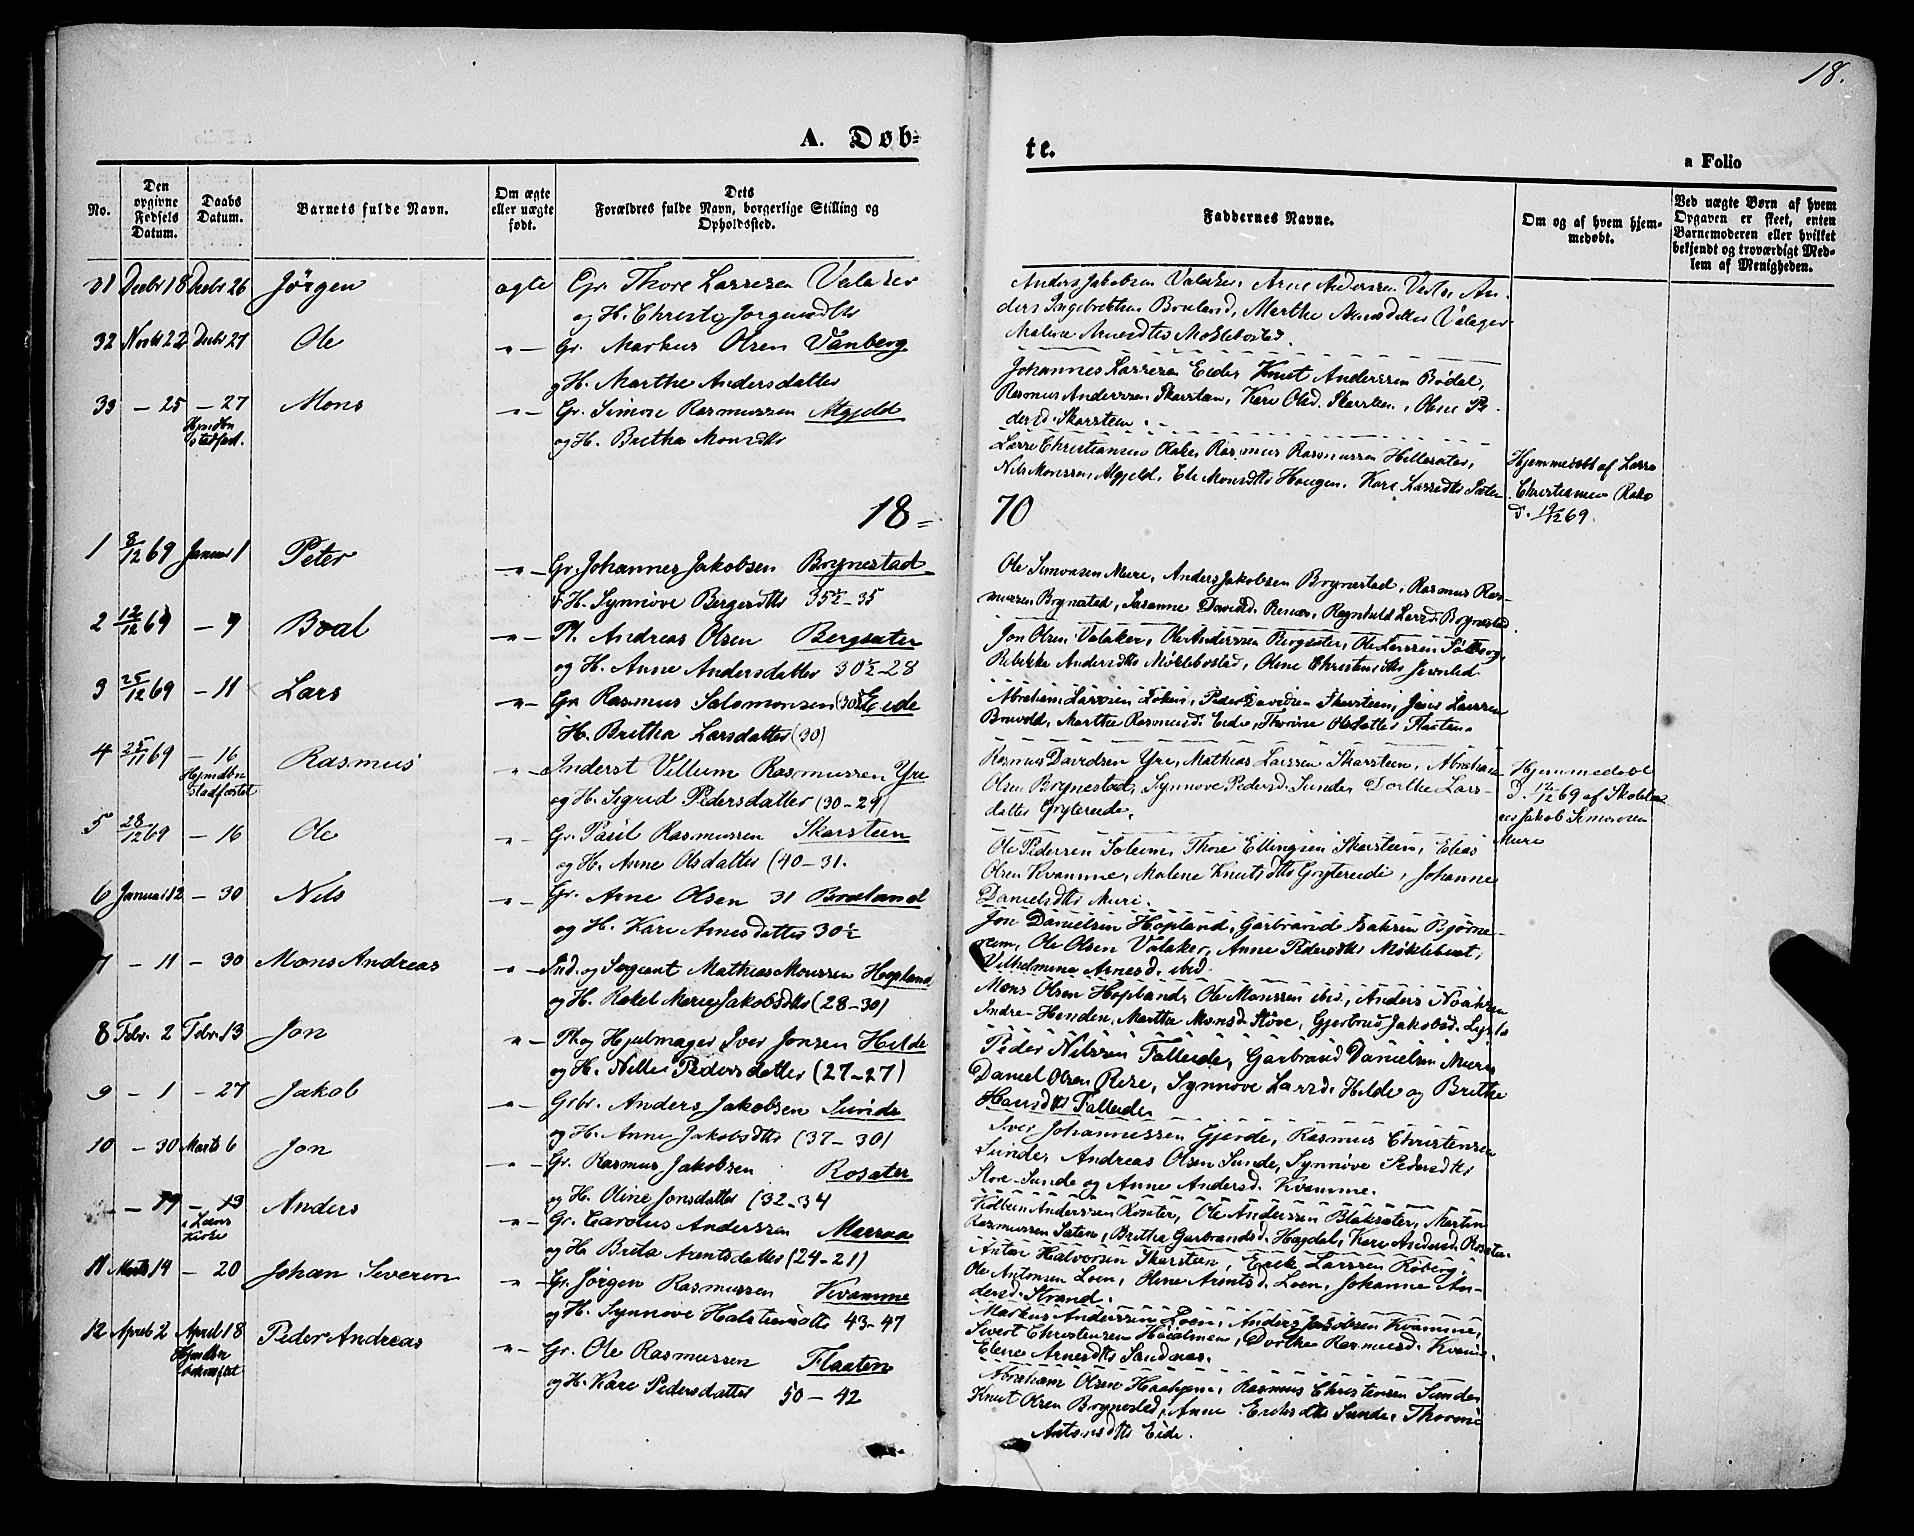 18.
A. Døb-
te.
a Folio
No.
Den opgivne Fødsels Datum.
Daabs Datum.
Barnets fulde Navn.
Om ægte eller uægte født.
Dets Forældres fulde Navn, borgerlige Stilling og Opholdssted.
Faddernes Navne.
Om og af hvem hjemmedøbt.
Ved uægte Børn af hvem Opgaven er skeet, enten Barnemoderen eller hvilket bekjendt og troværdigt Medlem af Menigheden.
31 Decbr 18 Decbr 26 Jörgen ægte Gr. Thore Larssen
og H. Christi Jorgensdtr
Anders Jakobsen Arne Anderssen An-
ders Ingebretsen Marthe
Malene Arnesdtr Moklebostad.
32 Novb 22 Decbr 27 Ole -"- Gr. Markus Olsen Vanberg
og H. Marthe Andersdatter
Johannes Larssen Eide, Knut Anderssen Bödal,
Rasmus Anderssen Skarsten, Kari Olsd. Skarsten, Oline Pe-
dersd. Skarsteen.
33 - 25 - 27 Mons -"- Gr. Simon Rasmussen
Hjmdbn
stadfæst.
og H. Bretha Monsdtr
Larss Christiansen Rake, Rasmus Rasmussen
Nils Monssen, Ele Monsdtr Haugen, Kari Larsdtr
Hjemmedøbt af Larss
Christiansen Rake
d. 19/12 69.
18 = 70
1 8/12 69 Januar 1 Peter -"- Gr. Johannes Jakobsen Brynestad
& H. Synnöve Bergersdtr 35½-35
Ole Simonsen Mure, Anders Jakobsen Brynestad, Rasmus Ras-
mussen Brynestad, Susanne Davidsd. Ragnhild Larsd. Brynestad
2 12/12 69 - 9 Boal -"- Pl. Andreas Olsen Bergsæter
og H. Anne Andersdatter 30½-28
Jon Olsen Valaker, Ole Anderssen Bergsæter, Ole Larssen
Rebekke Andersdtr Möklebostad, Oline Christensdtr
3 25/12 69 - 11 Lars -"- Gr. Rasmus Salomonsen (30) Eide
H. Britha Larsdatter (30)
Abraham Larssen Loken, Peder Davidsen Skarsteen, Jens Larssen
Marthe Rasmusd. Eide, Thorine Olsdatter Flaaten.
4 25/11 69 - 16 Rasmus -"- Inderst Villum Rasmussen Yre
Hjmdbn
stadfæstet
og H. Sigrid Pedersdatter (30-29)
Rasmus Davidsen Yre, Mathias Larssen Skarsteen, Abraham
Olsen Brynestad, Synnove Pedersd. Sunde, Dorthe Lars-
datter Grytereide.
Hjemmedøbt
d. 12/12 69 af Skolelæ-
rer Jakob Simonsen
Mure
5 28/12 69 - 16 Ole -"- Gr. Paul Rasmussen Skarsteen
og H. Anne Olsdatter (40-31.
Ole Pedersen Soleim, Thore Ellingsen Skarsteen, Elias
Olsen Kvamme, Malene Knutsdtr Grytereide, Johanne
Danielsdtr Mure.
6 Januar 12 - 30 Nils -"- Gr. Arne Olsen 31 Bræland
og H. Kari Arnesdatter 30½
Jon Danielsen Hopland, Garbrand Isaksen Björne-
reim, Ole Olsen Valaker, Anne Pedersdtr Möklebust,
Vilhelmina Arnesd. ibid.
7 - 11 - 30 Mons Andreas -"- Ind. og Sergeant Mathias Monssen Hopland
og H. Rakel Marie Jakobsdtr (28-30)
Mons Olsen Hopland, Ole Monssen ibid, Anders Noahsen
Indre-Henden, Marthe Monsd. Stöve, Gjertrud Jakobsd.
8 Febr. 2 Febr. 13 Jon -"- Pl. og Hjulmager Iver Jonsen Hilde
og H. Nille Pedersdatter (27-27)
Peder Nilssen Falleide, Garbrand Danielsen Mure
Daniel Olsen Rere, Synnove Larsd. Hilde og Brithe
Hansdtr Falleide
9 - 1 - 27 Jakob -"- Grbr. Anders Jakobsen Sunde
og H. Anne Jakobsdtr (37-30)
Iver Johannessen Gjerde, Rasmus Christensen
Sunde, Andreas Olsen Sunde, Synnöve Pedersdtr
Store-Sunde og Anne Andersd. Kvamme.
10 - 30 Marts 6 Jon -"- Gr. Rasmus Jakobsen Rosæter
og H. Oline Jonsdatter (32-34
Kolbein Anderssen Rosæter, Ole Anderssen Blaksæter, Martin
Rasmussen Sæten, Britha Garbrandsd. Hagdal, Kari Andersd. Rosæter.
- 19 - 13 Anders -"- Gr. Carolus Anderssen
i Loens
Kirke
og H. Brita Arentsdatter (24-21)
Anton Halvorsen Skarsteen, Erik Larssen Röberg,
Ole Antonsen Loen, Oline Arentsd. Loen, Johanne An-
dersd. Strand.
11 Marts 14 - 20 Johan Severin -"- Gr. Jörgen Rasmussen Kvamme
og H. Synnove Halsteinsdtr 43-47
Markus Anderssen Loen, Anders Jakobsen Kvamme,
Sivert Christensen Dorthe Rasmusd. Kvamme.
Elene Arnesdtr Sandnæs.
12 April 2 April 18 Peder Andreas -"- Gr. Ole Rasmussen Flaaten
Hjmdbn
bekræftet
og H. Kari Pedersdatter 50-42
Abraham Olsen Rasmus Christensen Sunde
Knut Olsen Brynestad, Anne Eriksdtr Sunde, Thorine
Antonsdtr Eide.